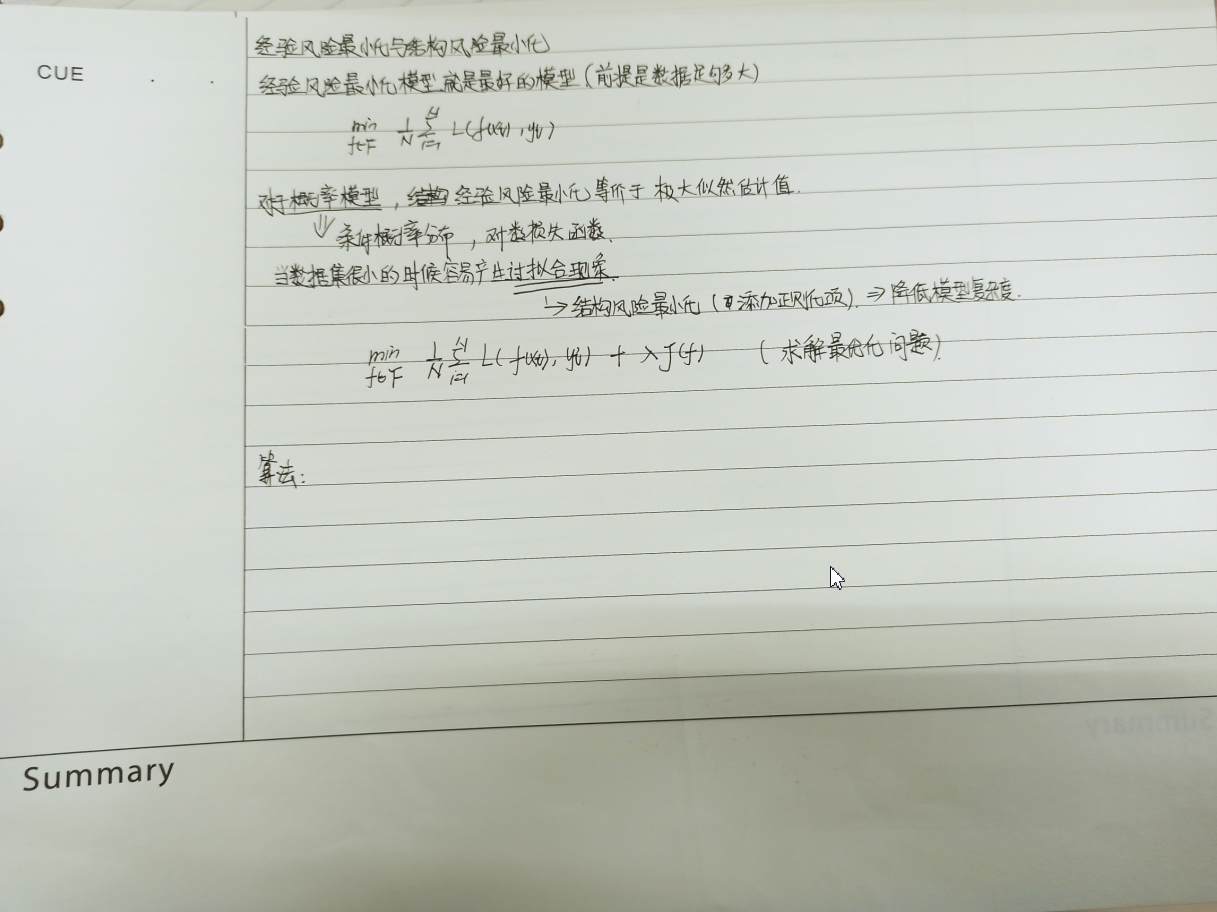 CUE
经验风险最小化与结构风险最小化
经验风险最小化模型就是最好的模型(前提是数据足够多大)
min f∈F 1/N N∑i=1 L(f(xi),yi)
对于概率模型,结构 经验风险最小化等价于 极大似然估计值.
⇓ 条件概率分布,对数损失函数.
当数据集很小的时候容易产生过拟合现象.
↳ 结构风险最小化(添加正则化项).⇒降低模型复杂度.
min f∈F 1/N N∑i=1 L(f(xi),yi) + λJ(f) (求解最优化问题).
算法:
Summary
Summary